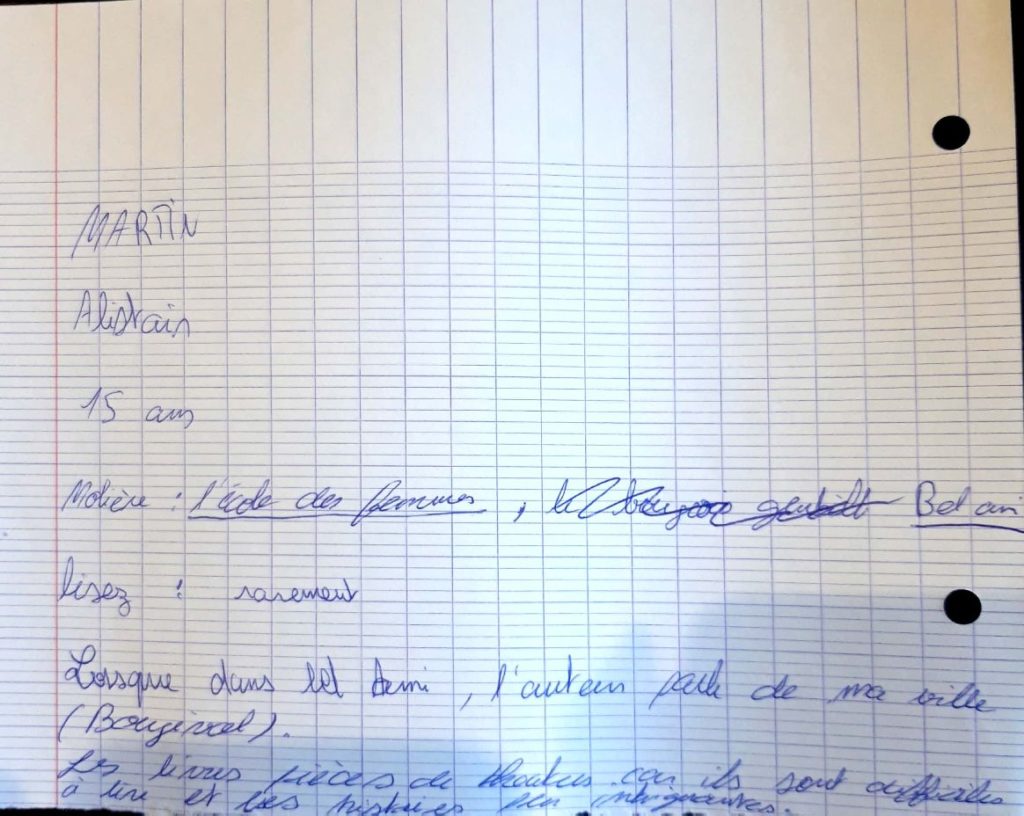 MARTIN
Alistair
15 ans
Molière : l'école des femmes, le bourgeois gentilh Bel ami
lisez : rarement
Lorsque dans bel Ami, l'auteur parle de ma ville
(Bougival).
Les livres pièces de théatres car ils sont difficiles
à lire et les histoires peu intriguantes.